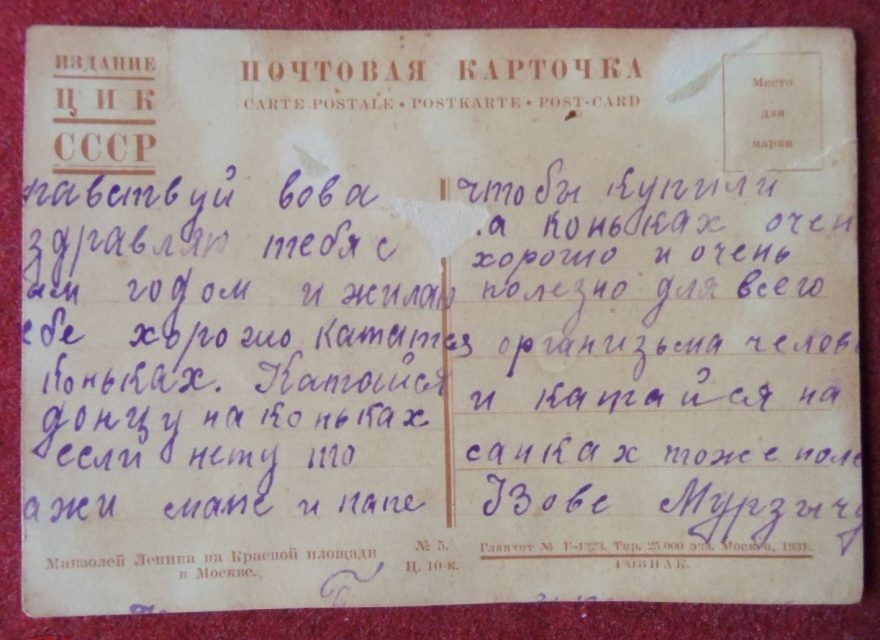 ИЗДАНИЕ
ЦИК
СССР
ПОЧТОВАЯ КАРТОЧКА
CARTE POSTALE • POSTKARTE • POST-CARD
Место
для
марки
равствуй вова
здравляю тебя с
ым годом и жилаю
ебе хорошо кататся
коньках. Катайся
донцу на коньках
если нету то
ажи маме и папе
чтобы купили
а коньках очен
хорошо и очень
полезно для всего
организьма челов
и катайся на
санках тоже поле
Вове Мурзычу
Мавзолей Ленина на Красной площади
в Москве.
№ 5.
Ц. 10 к.
Главлит № Б-1323. Тир. 25.000 экз. Москва, 1931.
ГОЗНАК.